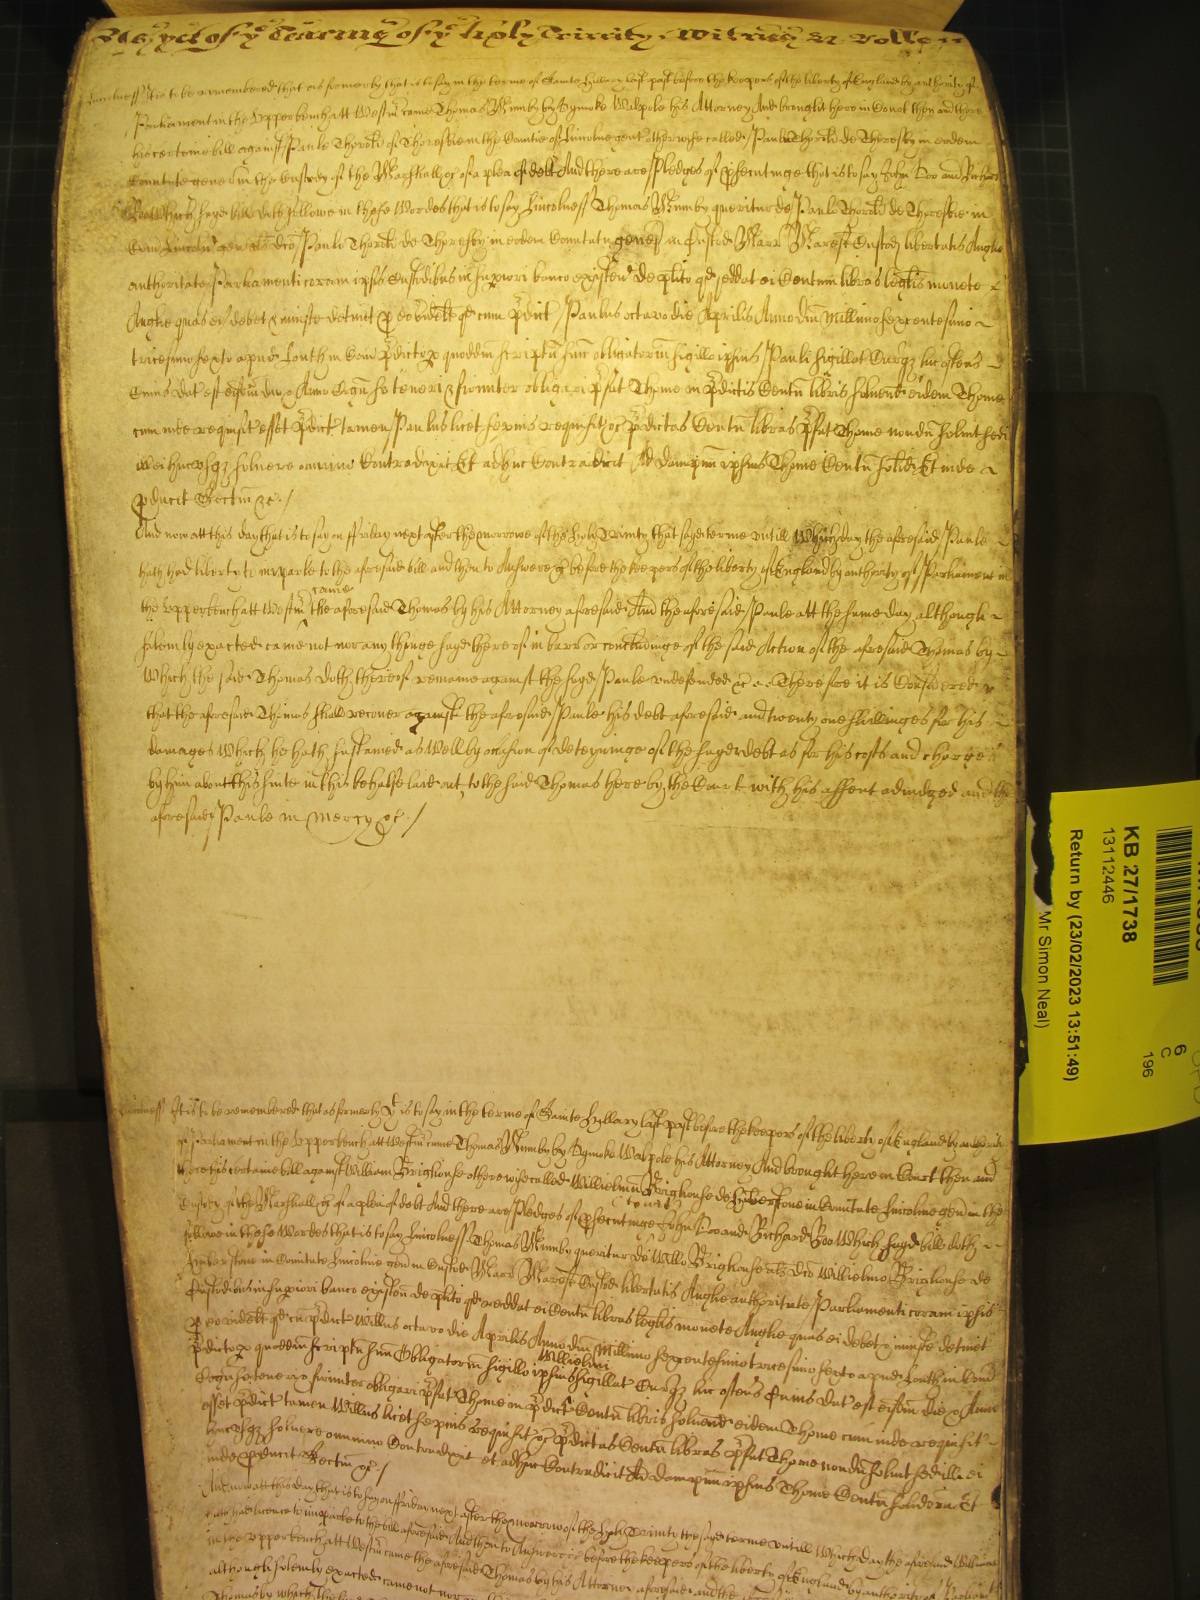 As yet of ye Tearme of ye holy Trinity. Witnes H: Rolle
Lincolness It is to be remembered that as formerly that is to say in the terme of Sainte Hillary last past before the keepers of the liberty of England by authority of
Parliament in the Upper bench att Westm̃ came Thomas Mumby by Dymoke Walpole his Attorney And brought here in Court then and there
his certeine bill against Paule Thorold of Thoresbie in the Countie of Lincolne gent otherwise called Paule Thorold de Thoresby in eodem
Comitatu gener in the Custody of the Marshall &c of a plea of debt And there are Pledges of p̱secutinge that is to say John Doo and Richard
Roo Which sayd bill doth followe in these Wordes that is to say Lincolness Thomas Mumby queritur de Paulo Thorold de Thoresbie in
Com̃ Lincoln gen als̃ dc̃o Paulo Thorold de Thoresby in eodem Comitatu geneř in Custod Marr Maresc̃ Custod libertatis Anglie
authoritate Parliamenti coram ip̃is Custodibus in sup̱iori banco existeñ de pl̃ito qd̃ reddat ei Centum libras leg̃lis monete
Anglie quas ei debet & iniuste detinet p̱ eo videl̃t qd̃ cum p̃dict Paulus octavo die Aprilis Anno Dñi Mill̃imo sexcentesimo
tricesimo sexto apud Louth in Com̃ p̃dicto p̱ quoddm̃ scriptũ suũ obligatoriũ sigillo ip̃ius Pauli sigillat Curq̃ hic ostens
Cuius dat est eisdm̃ die & Anno Cogñ se teneri & firmiter obligari p̃fat Thome in p̃dictis Centũ libris solvend eidem Thome
cum inde requisit esset p̃dict tamen Paulus licet sepius requisit &c p̃dictas Centũ libras p̃fat Thome nondũ solvit sed
ill ei hucusq̃ solvere om̃ino Contradixit Et adhuc Contradicit Ad dampnũ ip̃ius Thome Centũ solid Et inde
p̱ducit Sectam &c. /
And now att this day that is to say on ffriday next after the morrowe of the holy Trinity that sayd terme untill Which day the aforesaid Paule
hath had liberty to imparle to the aforesaid bill and then to Answere &c before the keepers of the liberty of England by authority of Parliament in
the Upper bench att Westm̃ came the aforesaid Thomas by his Attorney aforesaid And the aforesaid Paule att the same day although
solemly exacted came not nor any thinge sayd thereof in barr or concludinge of the said Action of the aforesaid Thomas by
Which the said Thomas doth thereof remaine against the sayd Paule undefended &c Therefore it is Considered
that the aforesaid Thomas shall recover against the aforesaid Paule his debt aforesaid and twenty one shillinges for his
damages Which he hath sustained as Well by occasion of deteyninge of the sayd debt as for his costs and charges
by him about his suite in this behalfe laid out to the said Thomas here by the Court with his assent adiudged and the
aforesaid Paule in mercy &c. /
Lincolness It is to be remembered that as formerly yt is to say in the terme of Sainte Hillary last past before the keepers of the liberty of England by authoritie
of Parliament in the Upper bench att Westm̃ came Thomas Mumby by Dymoke Walpole his Attorney And brought here in Court then and
there his certaine bill against William Brighouse otherewise called Willielmũ Brighouse de in Comitatu Lincolne geñ in the
Custody of the Marshall &c of a plea of debt And there are Pledges of p̱secutinge to wit John Doo and Richard Roo Which sayd bill doth
followe in these Wordes that is to say Lincolness Thomas Mumby queritur de Will̃o Brighouse als̃ dc̃o Willielmo Brighouse de
in Comitatu Lincolne geñ in Custod Marr Maresc̃ Custod libertatis Anglie authoritate Parliamenti coram ip̃is
Custodibus in sup̱iori banco existeñ de pl̃ito qd̃ reddat ei Centũ libras leg̃lis monete Anglie quas ei debet & iniuste detinet
p̱ eo videl̃t qd̃ cũ p̃dict Will̃us octavo die Aprilis Anno Dñi Mill̃imo sexcentesimo tricesimo sexto apud Louth in Com̃
p̃dicto p̱ quoddm̃ scriptũ suũ Obligatoriũ sigillo ip̃ius Willielmi sigillat Curq̃ hic ostens Cuius dat est eisdm̃ die & Anno
Cogñ se teneri & firmiter obligari p̃fat Thome in p̃dict Centũ libris solvend eidem Thome cum inde requisit
esset p̃dict tamen Will̃us licet sepius requisit &c p̃dictas Centũ libras p̃fat Thome nondũ solvit sed ill ei
hucusq̃ solvere om̃ino Contradixit et adhuc Contradicit Ad dampnũ ip̃ius Thome Centũ solidorũ Et
inde p̱ducit Sectam &c. /
And now att this day that is to say on ffriday next after the morrow of the holy Trinity the same terme untill Which day the aforesaid William
hath had licence to imparle to the bill aforesaid And then to Answere &c before the keepers of the liberty of England by authority of Parliament
in the Upper bench att Westm̃ came the aforesaid Thomas by his Attorney aforesaid and the
although solemly exacted came not nor
Thomas by which the said
KB 27/1738
13112446
Return by (23/02/2023 13:51:49)
Mr Simon Neal)
6
C
196